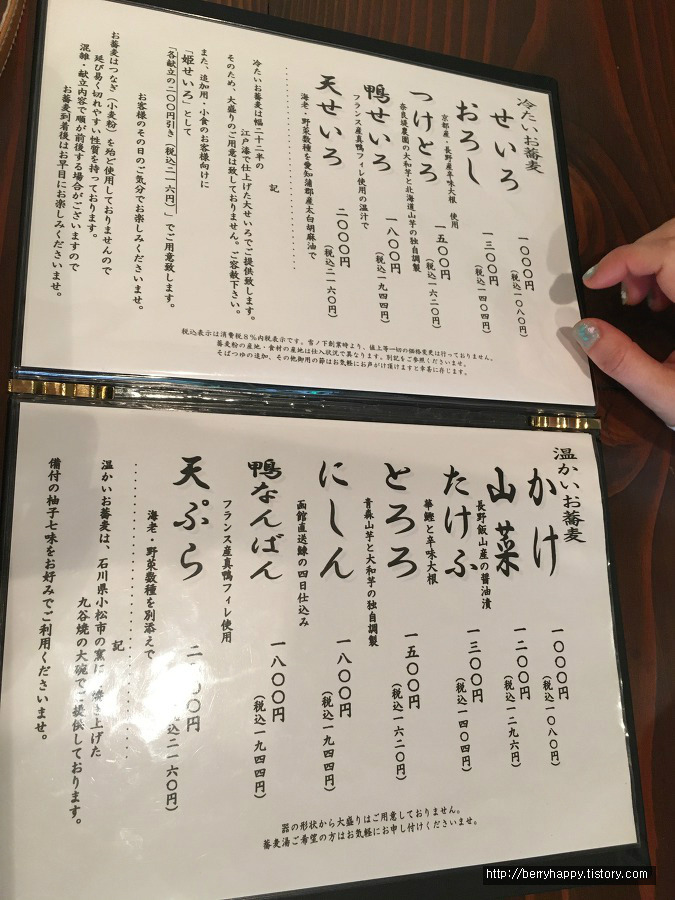 冷たいお蕎麦
せいろ
一〇〇〇円
(税込一〇八〇円)
おろし
京都産・長野産辛味大根 使用
一三〇〇円
(税込一四〇四円)
つけとろ
奈良堤農園の大和芋と北海道山芋の独自調製
一五〇〇円
(税込一六二〇円)
鴨せいろ
フランス産真鴨フィレ使用の温汁で
一八〇〇円
(税込一九四四円)
天せいろ
海老・野菜数種を愛知蒲郡産太白胡麻油で
二〇〇〇円
(税込二一六〇円)
記
冷たいお蕎麦は幅二十二寸の
江戸漆で仕上げた大せいろでご提供致します。
そのため、大盛りのご用意は致しておりません。ご容赦下さい。
また、追加用・小食のお客様向けに
「姫せいろ」として
「各献立の二〇〇円引き(税込二一六円)」でご用意致します。
お客様のその日のご気分でお楽しみくださいませ。
お蕎麦はつなぎ(小麦粉)を殆ど使用しておりませんので
延び易く切れやすい性質を持っております。
混雑・献立内容で順が前後する場合がございますので
お蕎麦到着後はお早目にお楽しみくださいませ。
税込表示は消費税8%内税表示です。雪ノ下創業時より、値上等一切の価格変更は行っておりません。
蕎麦粉の産地・食材の産地は仕入状況で異なります。別記をご参照くださいませ。
そばつゆの追加、その他御用の節はお気軽にお声がけ頂けますと幸甚に存じます。
温かいお蕎麦
かけ
一〇〇〇円
(税込一〇八〇円)
山菜
長野飯山産の醤油漬
一二〇〇円
(税込一二九六円)
たけふ
華鰹と辛味大根
一三〇〇円
(税込一四〇四円)
とろろ
青森山芋と大和芋の独自調製
一五〇〇円
(税込一六二〇円)
にしん
函館直送鰊の四日仕込み
一八〇〇円
(税込一九四四円)
鴨なんばん
フランス産真鴨フィレ使用
一八〇〇円
(税込一九四四円)
天ぷら
海老・野菜数種を別添えで
二〇〇〇円
(税込二一六〇円)
記
温かいお蕎麦は、石川県小松市の窯に 焼き上げた
九谷焼の大碗でご提供しております。
備付の柚子七味をお好みでご利用くださいませ。
器の形状から大盛りはご用意しておりません。
蕎麦湯ご希望の方はお気軽にお申し付けくださいませ。
http://berryhappy.tistory.com